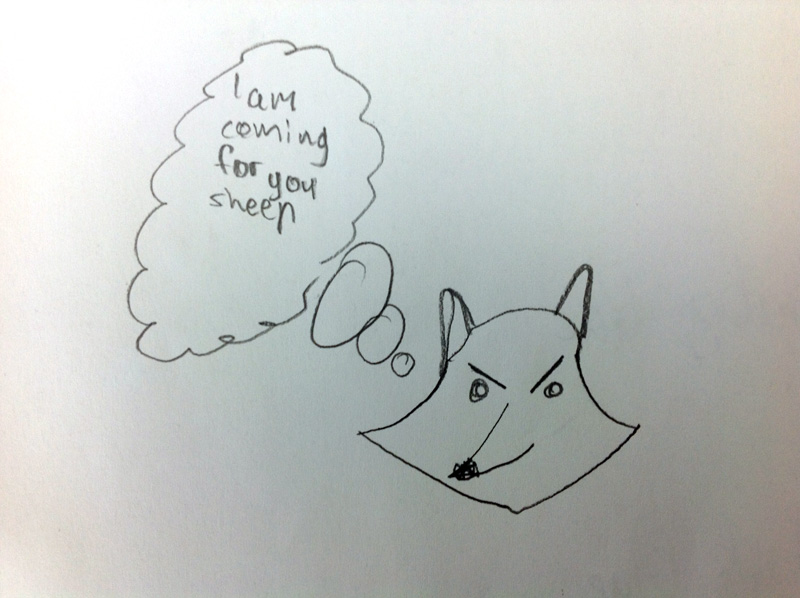 I am
coming
for you
sheep